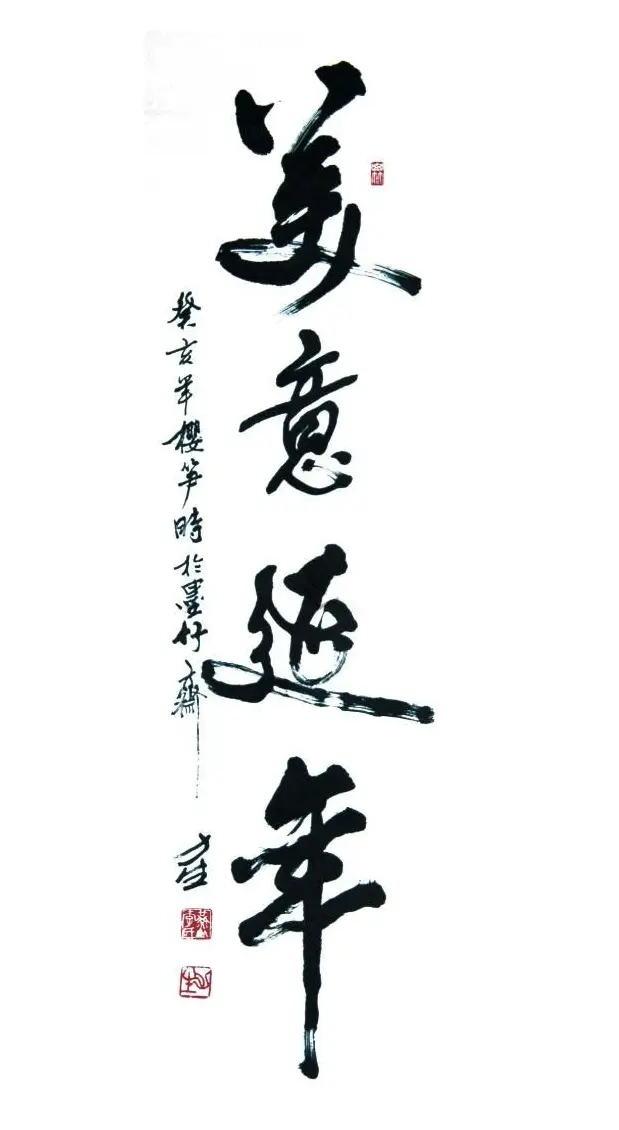 美意延年
癸亥年櫻笋時於墨竹齋